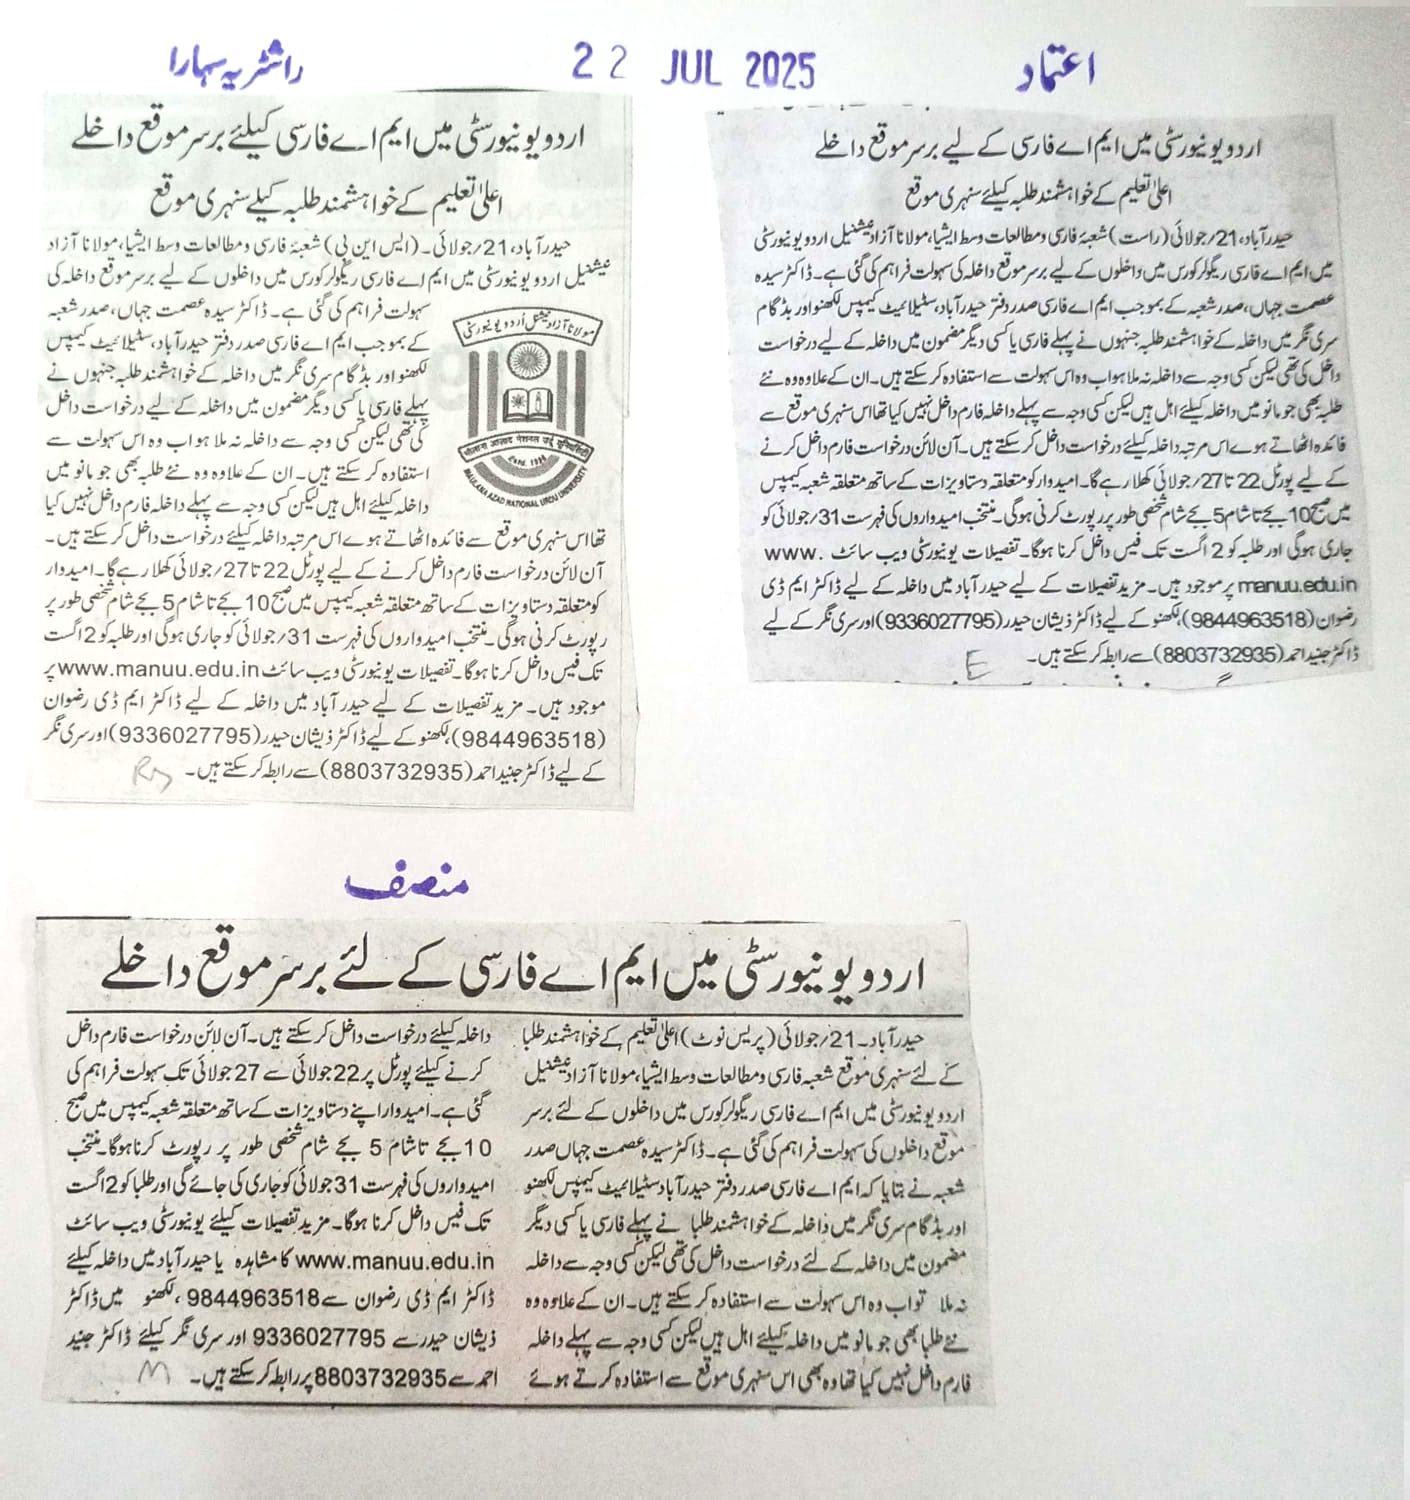 راشٹریہ سہارا
22 JUL 2025
اعتماد
اردو یونیورسٹی میں ایم اے فارسی کیلئے برسر موقع داخلے
اعلیٰ تعلیم کے خواہشمند طلبہ کیلے سنہری موقع
حیدرآباد، 21/جولائی۔ (ایس این بی) شعبۂ فارسی و مطالعات وسط ایشیا، مولانا آزاد
نیشنل اردو یونیورسٹی میں ایم اے فارسی ریگولر کورس میں داخلوں کے لیے برسر موقع داخلہ کی
سہولت فراہم کی گئی ہے۔ ڈاکٹر سیدہ عصمت جہاں، صدر شعبہ
کے بموجب ایم اے فارسی صدر دفتر حیدرآباد، سٹیلائیٹ کیمپس
لکھنو اور بڈگام سری نگر میں داخلہ کے خواہشمند طلبہ جنہوں نے
پہلے فارسی یا کسی دیگر مضمون میں داخلہ کے لیے درخواست داخل
کی تھی لیکن کسی وجہ سے داخلہ نہ ملا ہو اب وہ اس سہولت سے
استفادہ کر سکتے ہیں۔ ان کے علاوہ وہ نئے طلبہ بھی جو مانو میں
داخلہ کیلئے اہل ہیں لیکن کسی وجہ سے پہلے داخلہ فارم داخل نہیں کیا
تھا اس سنہری موقع سے فائدہ اٹھاتے ہوے اس مرتبہ داخلہ کیلئے درخواست داخل کر سکتے ہیں۔
آن لائن درخواست فارم داخل کرنے کے لیے پورٹل 22 تا 27/جولائی کھلا رہے گا۔ امیدوار
کو متعلقہ دستاویزات کے ساتھ متعلقہ شعبہ کیمپس میں صبح 10 بجے تا شام 5 بجے شام شخصی طور پر
رپورٹ کرنی ہوگی۔ منتخب امیدواروں کی فہرست 31/جولائی کو جاری ہوگی اور طلبہ کو 2 اگست
تک فیس داخل کرنا ہوگا۔ تفصیلات یونیورسٹی ویب سائٹ www.manuu.edu.in پر
موجود ہیں۔ مزید تفصیلات کے لیے حیدرآباد میں داخلہ کے لیے ڈاکٹر ایم ڈی رضوان
(9844963518)، لکھنو کے لیے ڈاکٹر ذیشان حیدر (9336027795) اور سری نگر
کے لیے ڈاکٹر جنید احمد (8803732935) سے رابطہ کر سکتے ہیں۔
مولانا آزاد نیشنل اُردو یونیورسٹی
मौलाना आज़ाद नेशनल उर्दू यूनिवर्सिटी
Estd. 1998
MAULANA AZAD NATIONAL URDU UNIVERSITY
اردو یونیورسٹی میں ایم اے فارسی کے لیے برسر موقع داخلے
اعلیٰ تعلیم کے خواہشمند طلبہ کیلئے سنہری موقع
حیدرآباد، 21/جولائی (راست) شعبۂ فارسی و مطالعات وسط ایشیا، مولانا آزاد نیشنل اردو یونیورسٹی
میں ایم اے فارسی ریگولر کورس میں داخلوں کے لیے برسر موقع داخلہ کی سہولت فراہم کی گئی ہے۔ ڈاکٹر سیدہ
عصمت جہاں، صدر شعبہ کے بموجب ایم اے فارسی صدر دفتر حیدرآباد، سٹیلائیٹ کیمپس لکھنو اور بڈگام
سری نگر میں داخلہ کے خواہشمند طلبہ جنہوں نے پہلے فارسی یا کسی دیگر مضمون میں داخلہ کے لیے درخواست
داخل کی تھی لیکن کسی وجہ سے داخلہ نہ ملا ہو اب وہ اس سہولت سے استفادہ کر سکتے ہیں۔ ان کے علاوہ وہ نئے
طلبہ بھی جو مانو میں داخلہ کیلئے اہل ہیں لیکن کسی وجہ سے پہلے داخلہ فارم داخل نہیں کیا تھا اس سنہری موقع سے
فائدہ اٹھاتے ہوے اس مرتبہ داخلہ کیلئے درخواست داخل کر سکتے ہیں۔ آن لائن درخواست فارم داخل کرنے
کے لیے پورٹل 22 تا 27/جولائی کھلا رہے گا۔ امیدوار کو متعلقہ دستاویزات کے ساتھ متعلقہ شعبہ کیمپس
میں صبح 10 بجے تا شام 5 بجے شام شخصی طور پر رپورٹ کرنی ہوگی۔ منتخب امیدواروں کی فہرست 31/جولائی کو
جاری ہوگی اور طلبہ کو 2 اگست تک فیس داخل کرنا ہوگا۔ تفصیلات یونیورسٹی ویب سائٹ www.
manuu.edu.in پر موجود ہیں۔ مزید تفصیلات کے لیے حیدرآباد میں داخلہ کے لیے ڈاکٹر ایم ڈی
رضوان (9844963518)، لکھنو کے لیے ڈاکٹر ذیشان حیدر (9336027795) اور سری نگر کے لیے
ڈاکٹر جنید احمد (8803732935) سے رابطہ کر سکتے ہیں۔
E
منصف
اردو یونیورسٹی میں ایم اے فارسی کے لئے برسر موقع داخلے
حیدرآباد۔ 21/جولائی (پریس نوٹ) اعلیٰ تعلیم کے خواہشمند طلبا
کے لئے سنہری موقع شعبہ فارسی و مطالعات وسط ایشیا، مولانا آزاد نیشنل
اردو یونیورسٹی میں ایم اے فارسی ریگولر کورس میں داخلوں کے لئے برسر
موقع داخلوں کی سہولت فراہم کی گئی ہے۔ ڈاکٹر سیدہ عصمت جہاں صدر
شعبہ نے بتایا کہ ایم اے فارسی صدر دفتر حیدرآباد سٹیلائیٹ کیمپس لکھنو
اور بڈگام سری نگر میں داخلہ کے خواہشمند طلبا نے پہلے فارسی یا کسی دیگر
مضمون میں داخلہ کے لئے درخواست داخل کی تھی لیکن کسی وجہ سے داخلہ
نہ ملا تو اب وہ اس سہولت سے استفادہ کر سکتے ہیں۔ ان کے علاوہ وہ
نئے طلبا بھی جو مانو میں داخلہ کیلئے اہل ہیں لیکن کسی وجہ سے پہلے داخلہ
فارم داخل نہیں کیا تھا وہ بھی اس سنہری موقع سے استفادہ کرتے ہوئے
داخلہ کیلئے درخواست داخل کر سکتے ہیں۔ آن لائن درخواست فارم داخل
کرنے کیلئے پورٹل پر 22 جولائی سے 27 جولائی تک سہولت فراہم کی
گئی ہے۔ امیدوار اپنے دستاویزات کے ساتھ متعلقہ شعبہ کیمپس میں صبح
10 بجے تا شام 5 بجے شام شخصی طور پر رپورٹ کرنا ہوگا۔ منتخب
امیدواروں کی فہرست 31 جولائی کو جاری کی جائے گی اور طلبا کو 2 اگست
تک فیس داخل کرنا ہوگا۔ مزید تفصیلات کیلئے یونیورسٹی ویب سائٹ
www.manuu.edu.in کا مشاہدہ یا حیدرآباد میں داخلہ کیلئے
ڈاکٹر ایم ڈی رضوان سے 9844963518، لکھنو میں ڈاکٹر
ذیشان حیدر سے 9336027795 اور سری نگر کیلئے ڈاکٹر جنید
احمد سے 8803732935 پر رابطہ کر سکتے ہیں۔
M